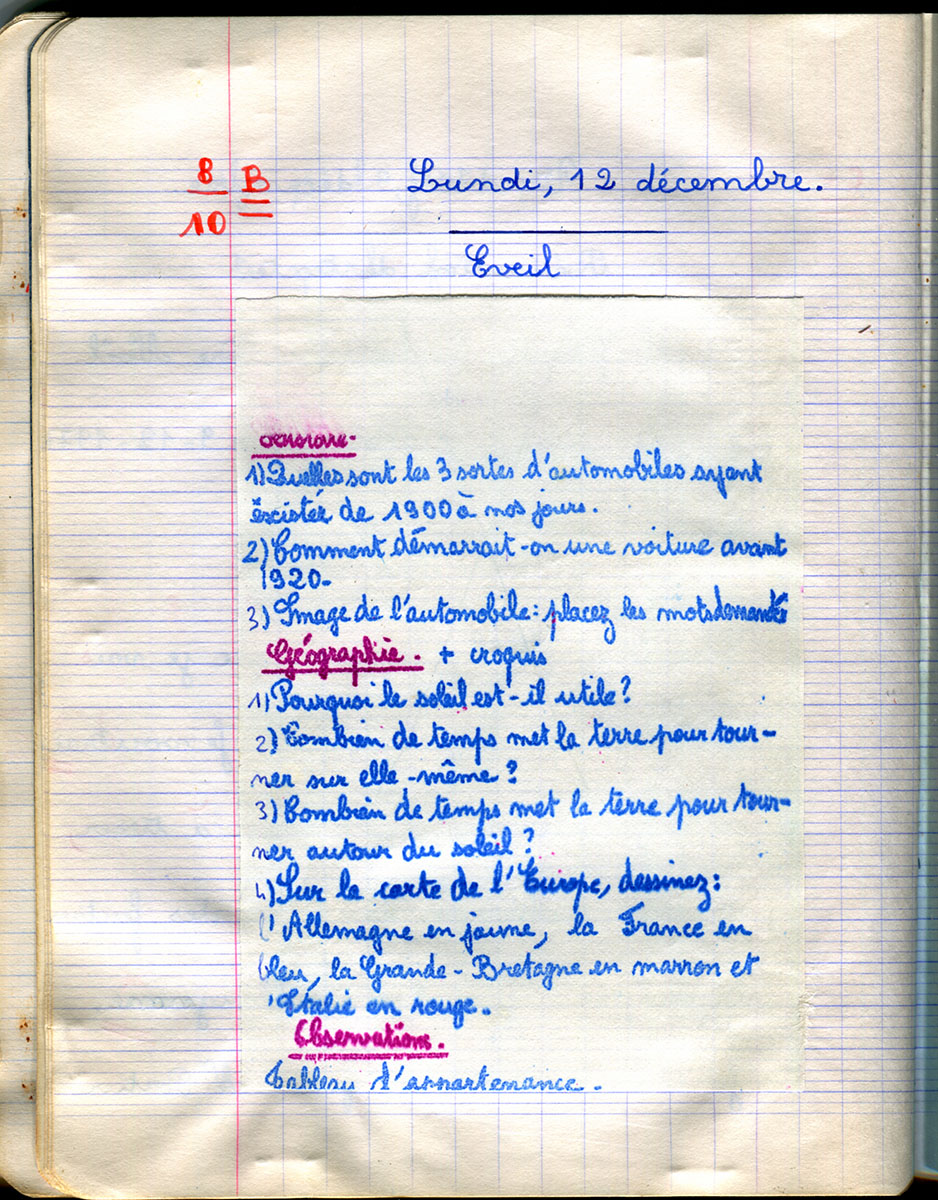 8 B
10
Lundi, 12 décembre.
Eveil
Histoire.
1) Quelles sont les 3 sortes d'automobiles ayant
éxcister de 1900 à nos jours.
2) Comment démarrait-on une voiture avant
1920.
3) Image de l'automobile: placez les mots demandés
Géographie. + croquis
1) Pourquoi le soleil est-il utile?
2) Combien de temps met la terre pour tour-
ner sur elle-même?
3) Combien de temps met la terre pour tour-
ner autour du soleil?
4) Sur la carte de l'Europe, dessinez:
l'Allemagne en jaune, la France en
bleu, la Grande-Bretagne en marron et
l'Italie en rouge.
Observations.
Tableau d'appartenance.